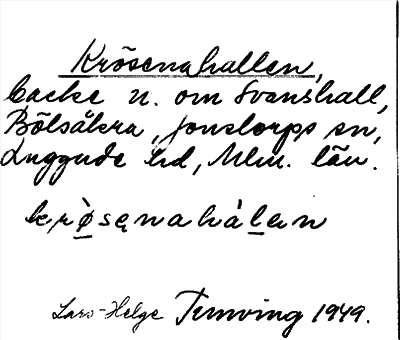 Krösenahallen,
backe n. om Svanshall,
Bölsåkra, Jonstorps sn,
Luggude hd, Mlm. län.
krø̀sena hàlen
Lars-Helge Tunving 1949.